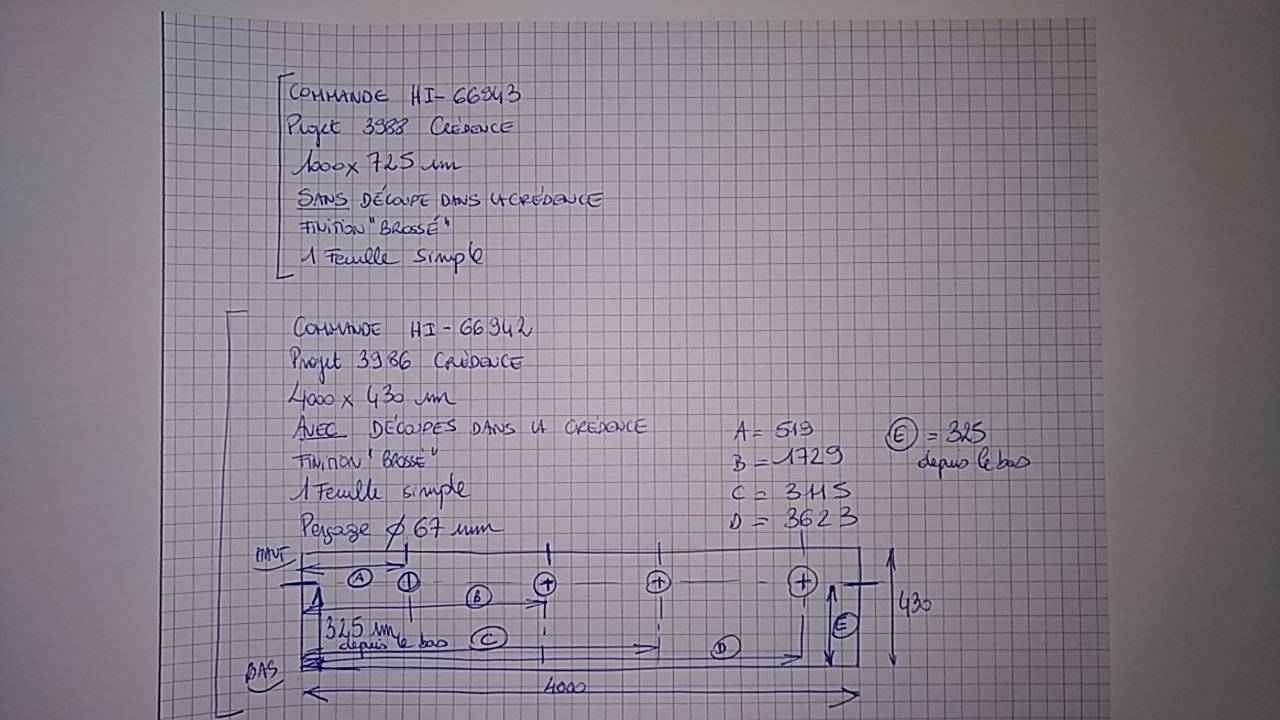 COMMANDE HI-66943
Projet 3988 CRÉDENCE
1000 x 725 mm
SANS DÉCOUPE DANS LA CRÉDENCE
FINITION "BROSSÉ"
1 Feuille simple
COMMANDE HI-66942
Projet 3986 CRÉDENCE
4000 x 430 mm
AVEC DÉCOUPES DANS LA CRÉDENCE
FINITION "BROSSÉ"
1 Feuille simple
Perçage ϕ 67 mm
A = 519
B = 1729
C = 3115
D = 3623
E = 325
depuis le bas
HAUT
A
B
325 mm
depuis le bas
C
D
E
430
BAS
4000